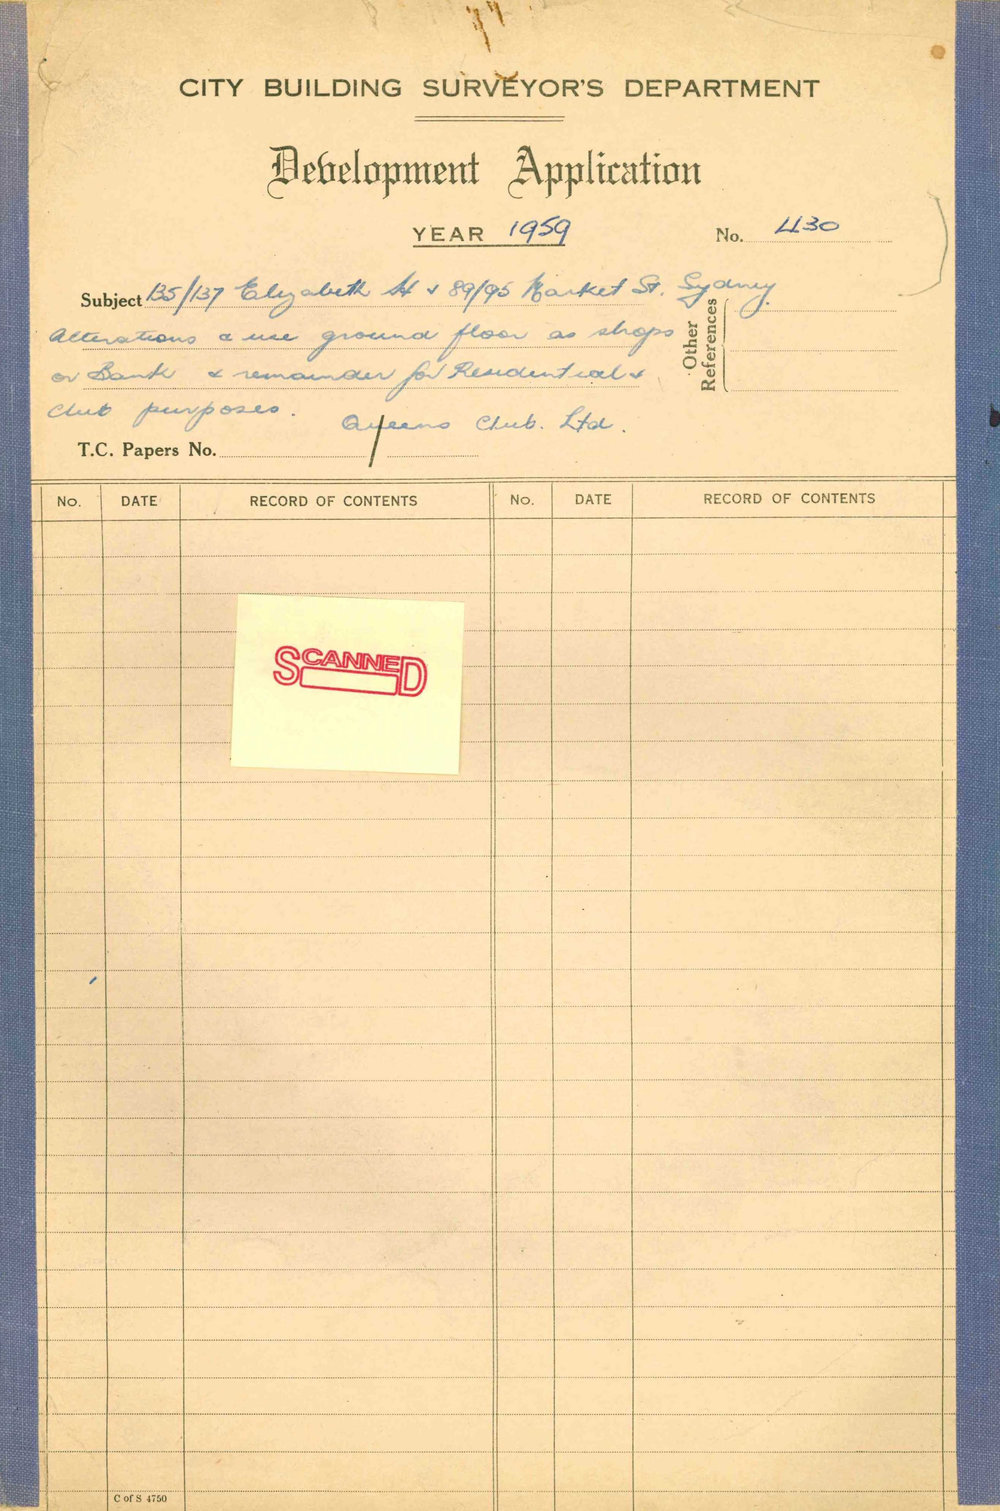 CITY BUILDING SURVEYOR'S DEPARTMENT
Development Application
YEAR 1959
No. 430
Subject 135/137 Elizabeth St & 89/95 Market St. Sydney
Alterations & use ground floor as shops
or Bank & remainder for Residential &
Club purposes. Queens Club. Ltd.
Other References
T.C. Papers No. /
No. DATE RECORD OF CONTENTS No. DATE RECORD OF CONTENTS
SCANNED
C of S 4750